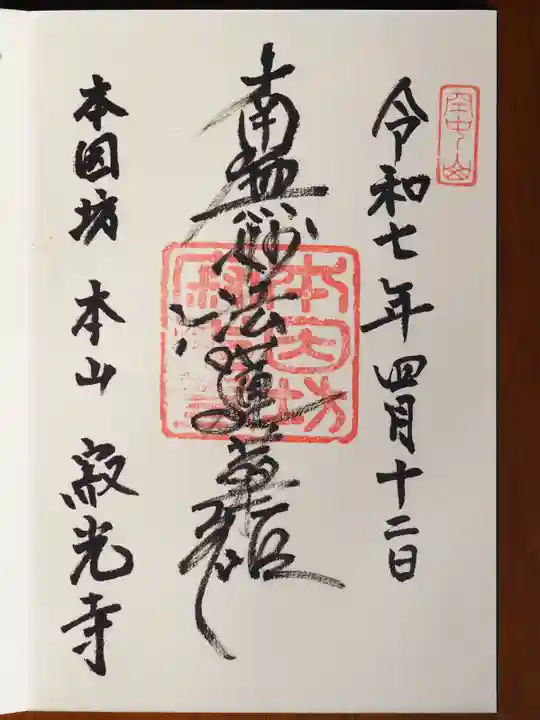 令和七年四月十二日
南無妙法蓮華経
本因坊
本因坊 本山 寂光寺